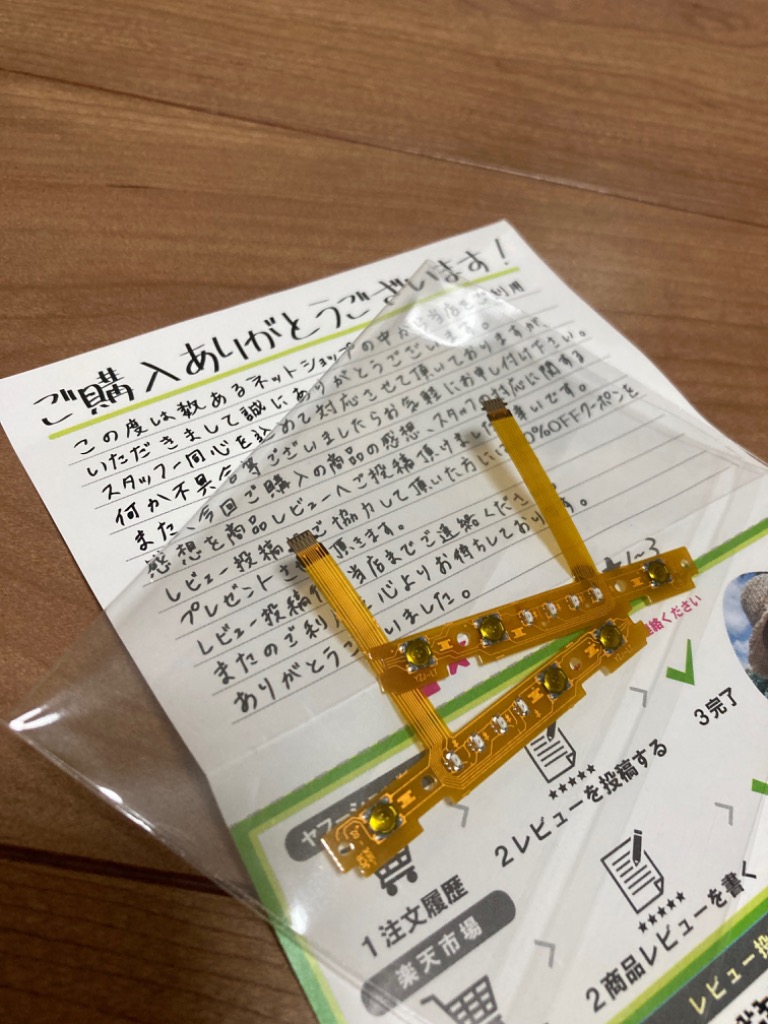 ご購入ありがとうございます！
この度は数あるネットショップの中から当店をご利用
いただきまして誠にありがとうございます。
スタッフ一同心を込めて対応させて頂いておりますが
何か不具合等ございましたらお気軽にお申し付け下さい。
また、今回ご購入の商品の感想、スタッフの対応に関する
感想を商品レビューへご投稿頂けましたら幸いです。
レビュー投稿にご協力して頂いた方に 0%OFFクーポンを
プレゼントさ 頂きます。
レビュー投稿 当店までご連絡くださ
またのご利 心よりお待ちしております。
ありがとうご いました。
連絡ください
ヤフー
1 注文履歴
2 レビューを投稿する
3 完了
楽天市場
2 商品レビューを書く
レビュー投